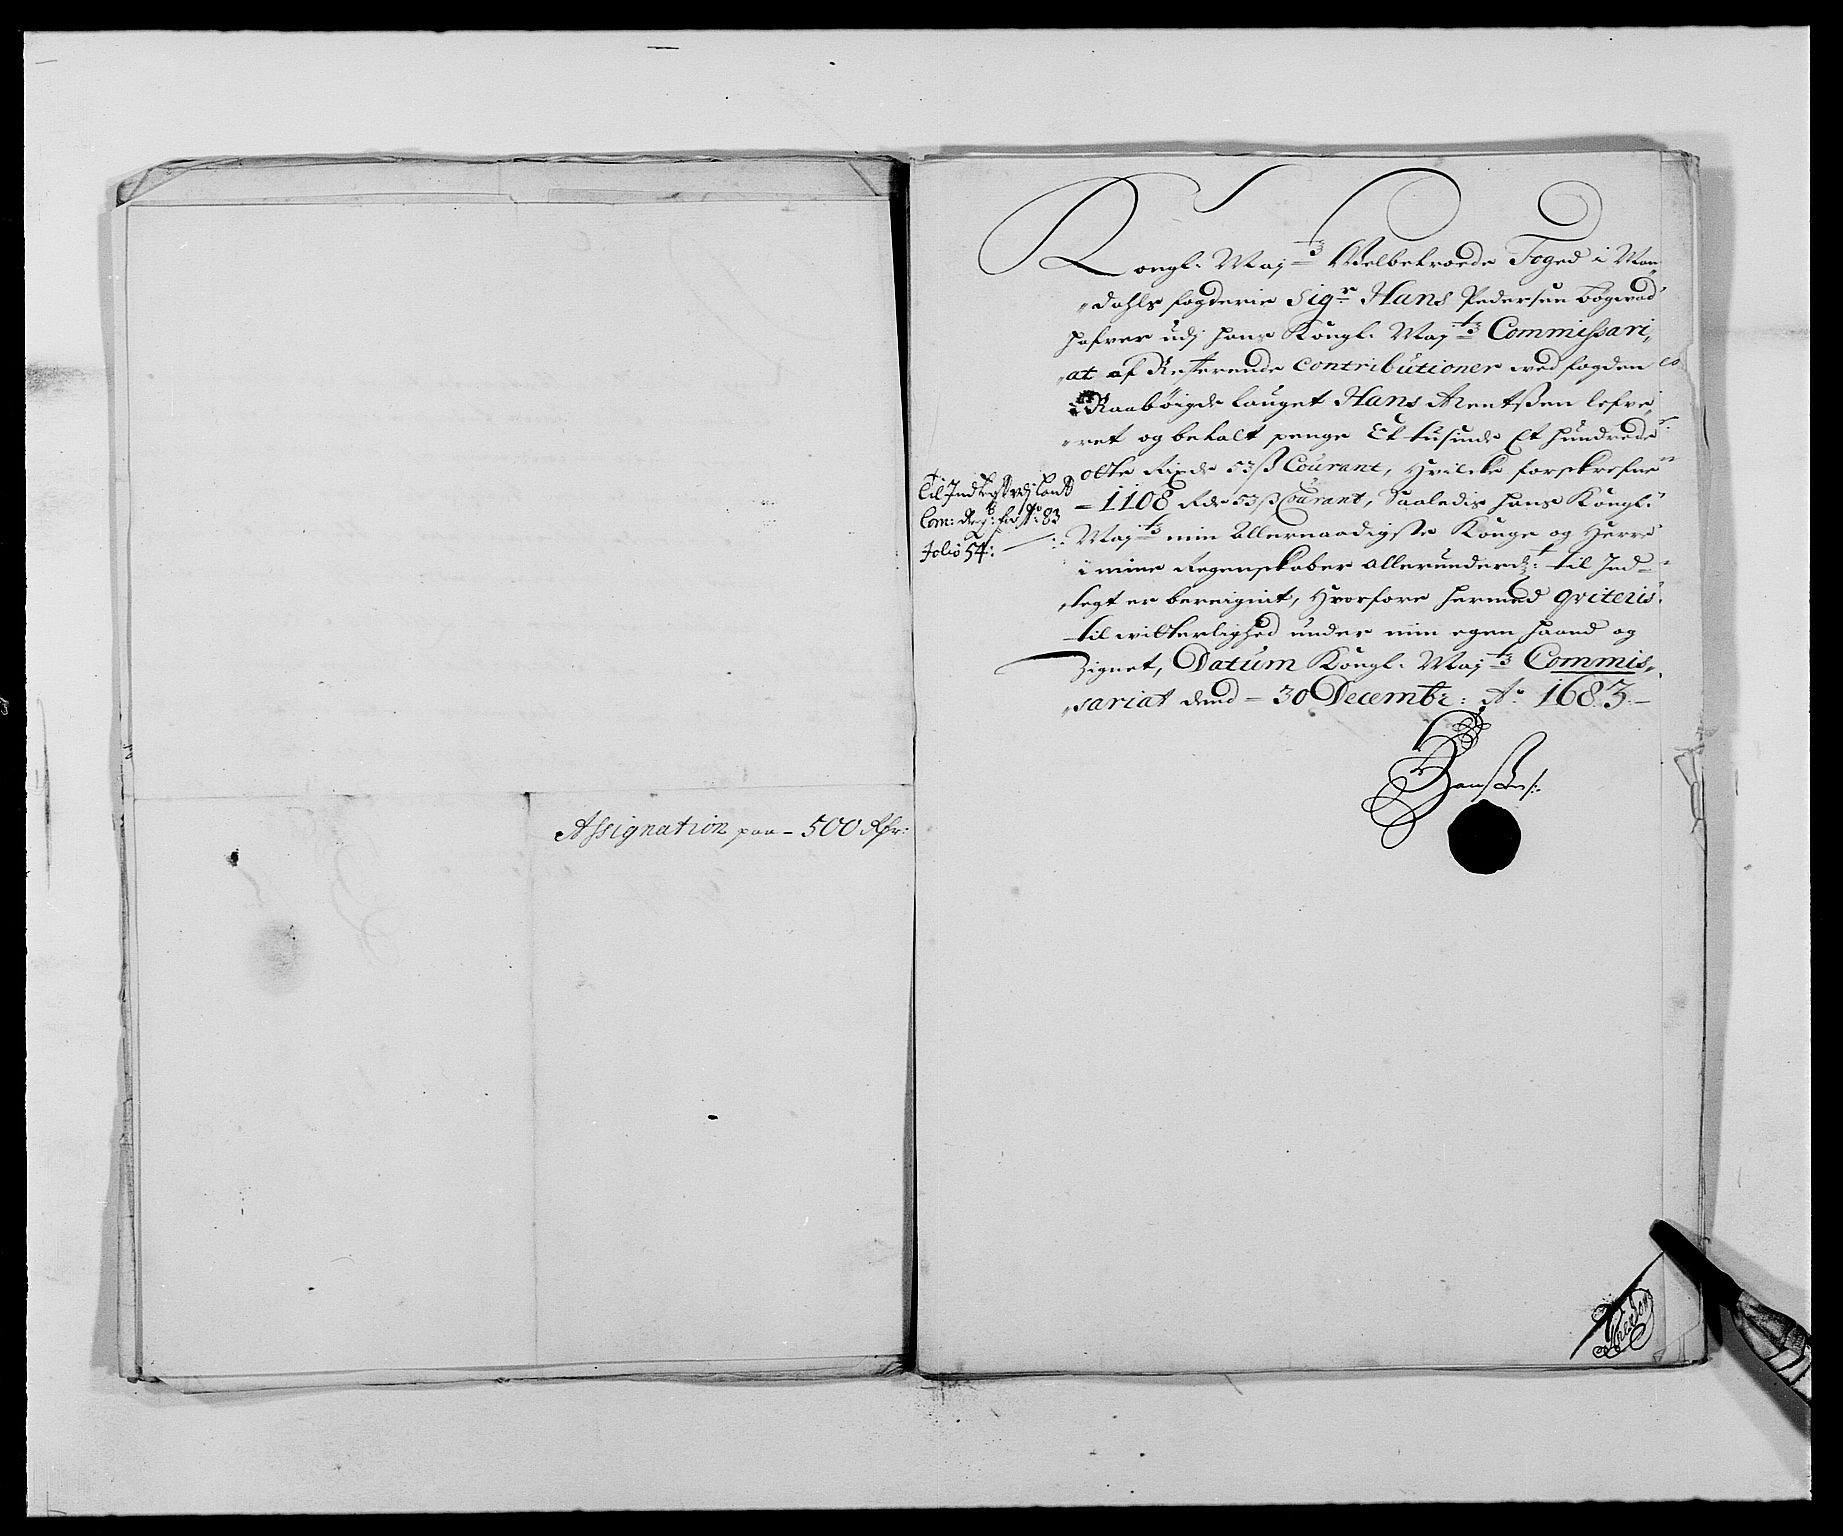 Assignation paa – 500 Rdr:
Kongl: Maj:tz Velbetroede Foged i Man„
„dahls fogderie Sigr Hans Pedersen Bogwad
hafver udj hans Kongl: Maj:tz Commissari„
„at af Resterende Contributioner wed fogden
i Raabøigde lauget Hans Arentßen lefve„
„ret og betalt penge Et tusinde Et hundrede
otte Rixdr 53 ß Courant, Hvilcke forskrefne
– 1108 Rdr 53 ß Courant, Saaledis hans Kongl:
Maj:tz min Allernaadigste Konge og Herre
i mine Regenskaber allerunderd:t til Ind„
„tegt er bereignit, Hvorfore hermed qviteris
til witterlighed under min egen haand og
Zignet, Datum Kongl: Maj:tz Commis„
„sariat dend – 30 Decembr: Ao 1683 –
Til Indtegt udj
Com: Reg: for Ao 83
folio 54: